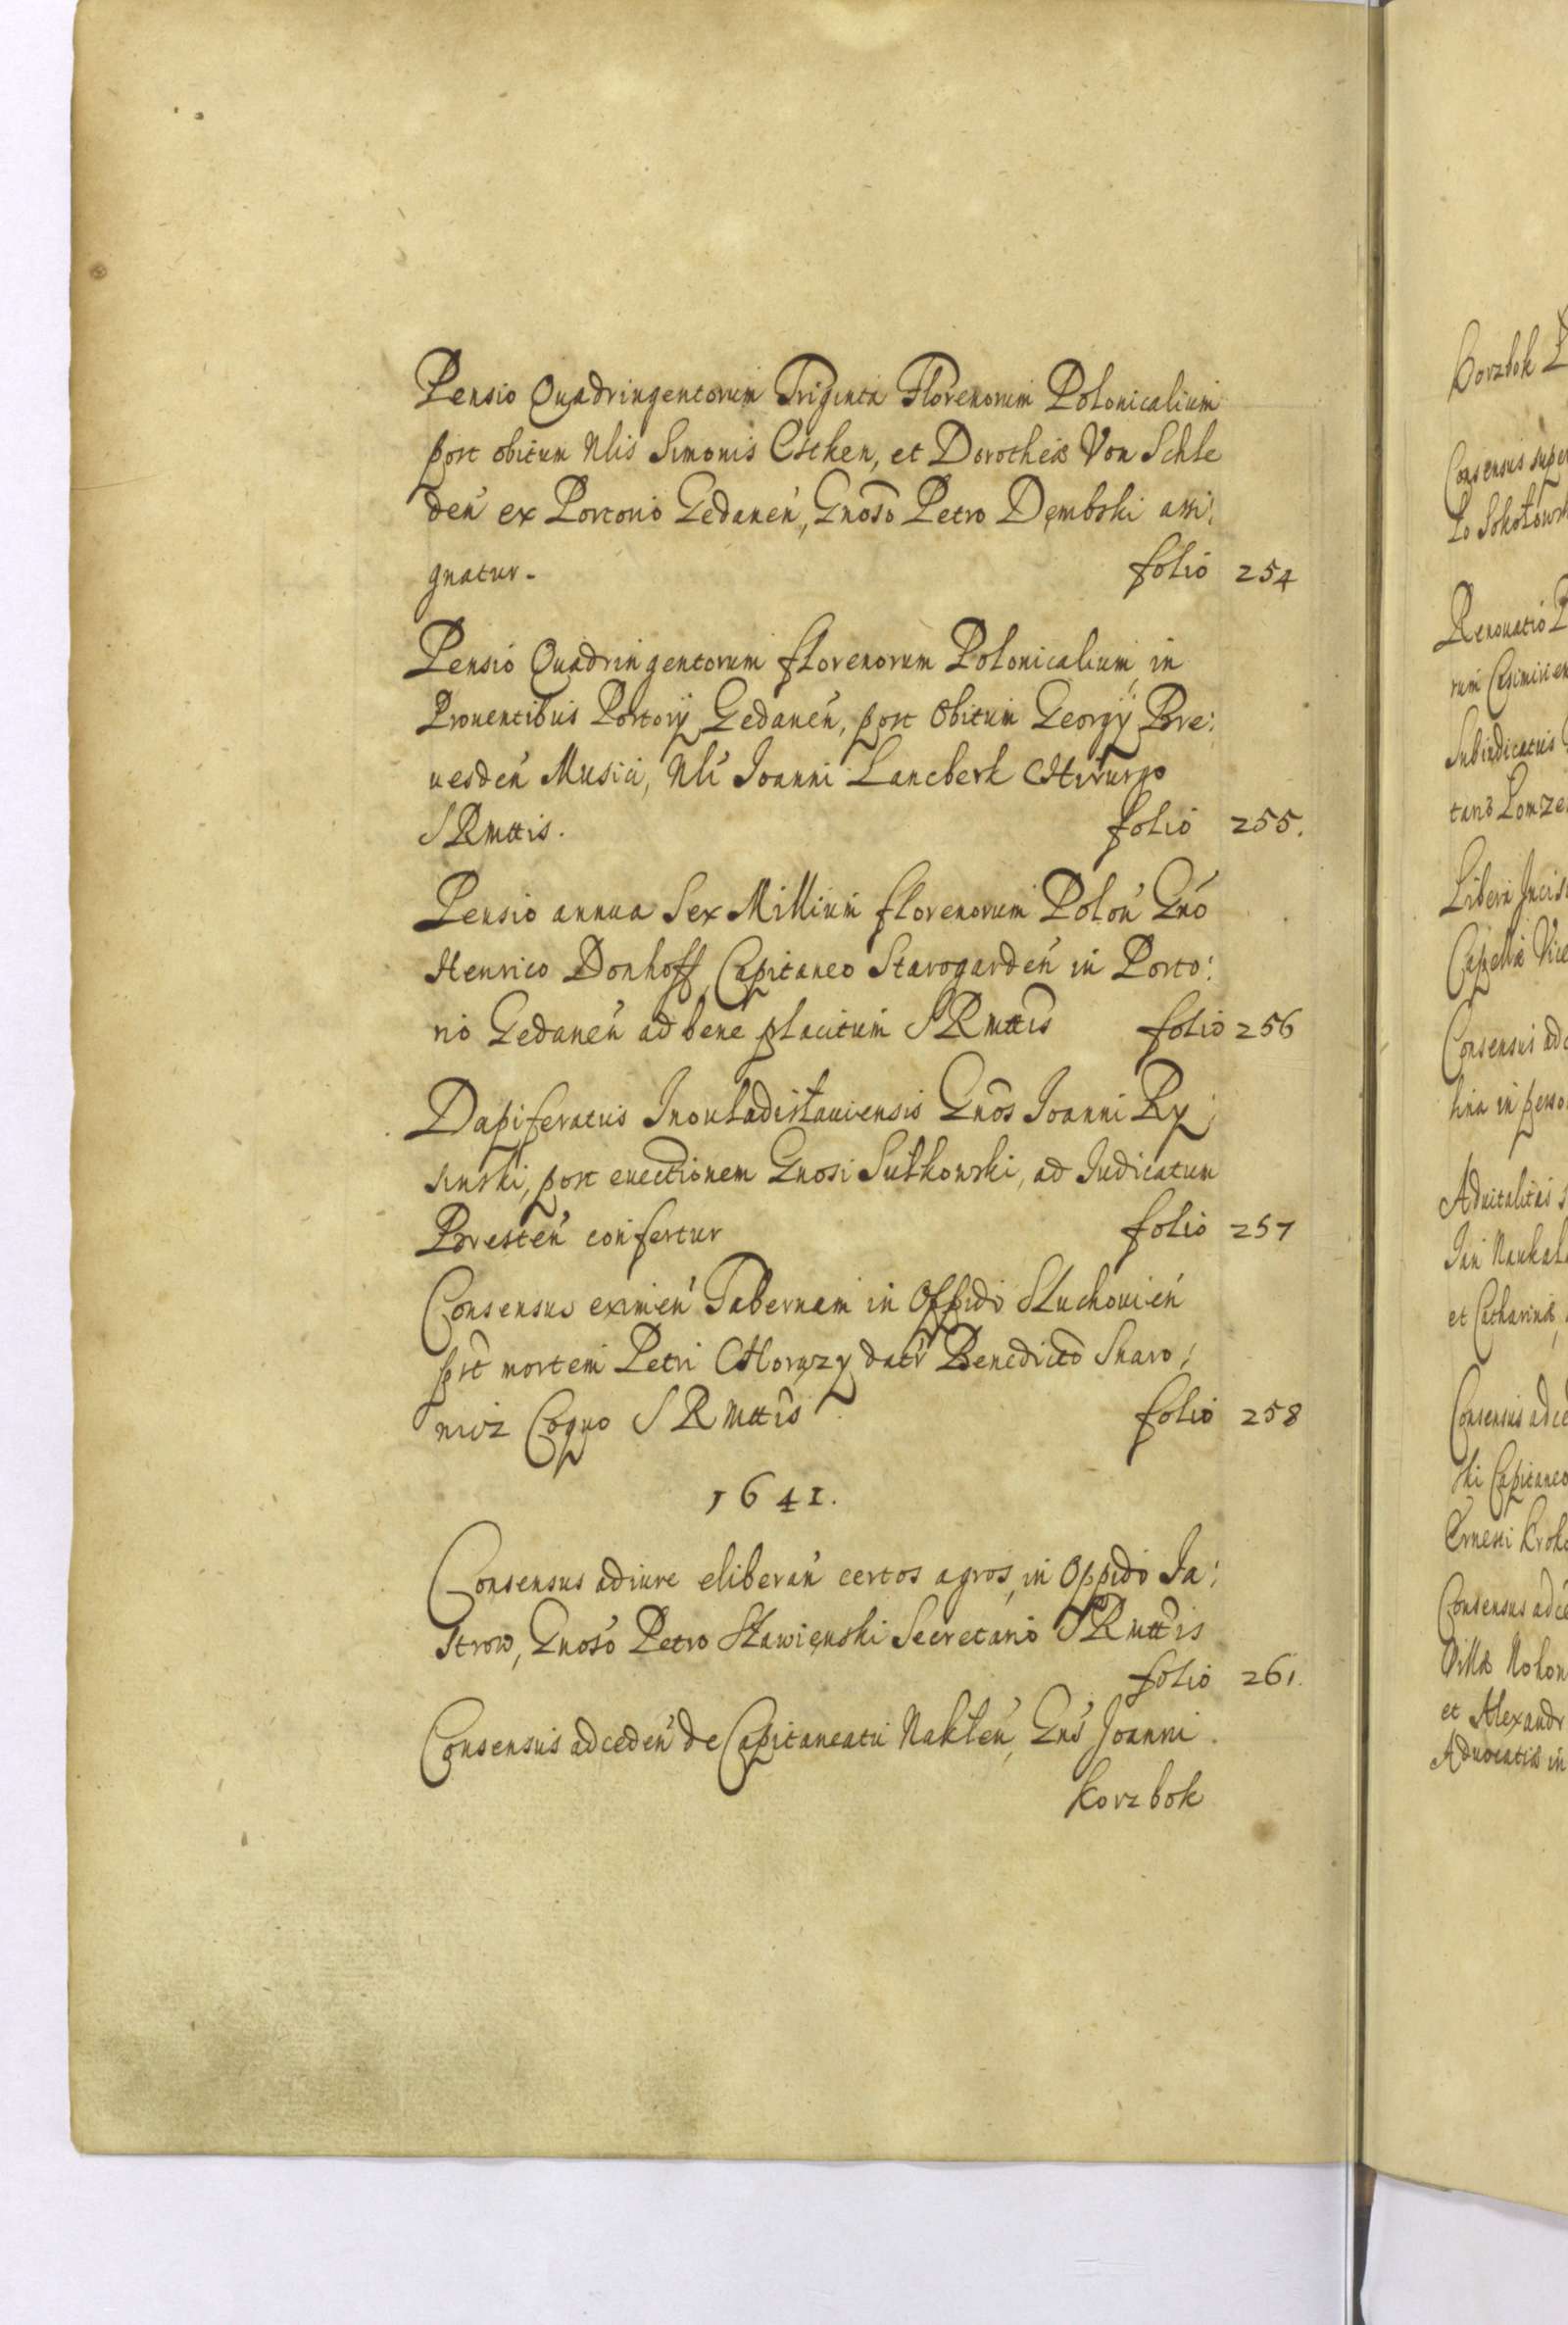 Pensio Quadringentorum Triginta Florenorum Polonicalium
post obitum Nlis Simonis Cscken, et Dorotheæ Von Schle
den̄ ex Portorio Gedanen̄, Gnoso Petro Dęmbski assi:
gnatur. folio 254
Pensio Quadringentorum florenorum Polonicalium, in
Prouentibus Portorÿ Gedanen̄, post Obitum Georgÿ Bre:
uesden̄ Musici, Nli Joanni Lancberk Chirurgo
SRMttis. folio 255.
Pensio annua Sex Millium florenorum Polon̄ Gn̄o
Henrico Donhoff, Capitaneo Starogarden̄ in Porto:
rio Gedanen̄ ad bene placitum SRMttis folio 256
Dapiferatus Inouladislauiensis Gnos̄ Joanni Ry:
sinski, post euectionem Gnosi Sutkowski, ad Iudicatum
Bresten̄ confertur folio 257
Consensus eximen̄ Tabernam in Oppido Sluchouien̄
post mortem Petri Chorązy datr̄ Benedicto Snaro:
wicz Coquo SRMttis folio 258
1641.
Consensus ad iure eliberan̄ certos agros, in Oppido Ja:
strow, Gnoso Petro Sławięnski Secretario SRMttis
folio 261.
Consensus ad ceden̄ de Capitaneatu Nakłen̄, Gns̄ Joanni
Korzbok
Korzbok
Consensus super
Sokołows
Renouatio
rum Casimirien
Subiudicatus
Liberi
Capellæ Vice
Consensus ad
lina in perso
Aduitalitas
et Catharinæ
Consensus ad ce
ski Capitaneo
Ernesti Kroko
Consensus ad ce
Villæ
et Alexandr
Aduocatiæ in